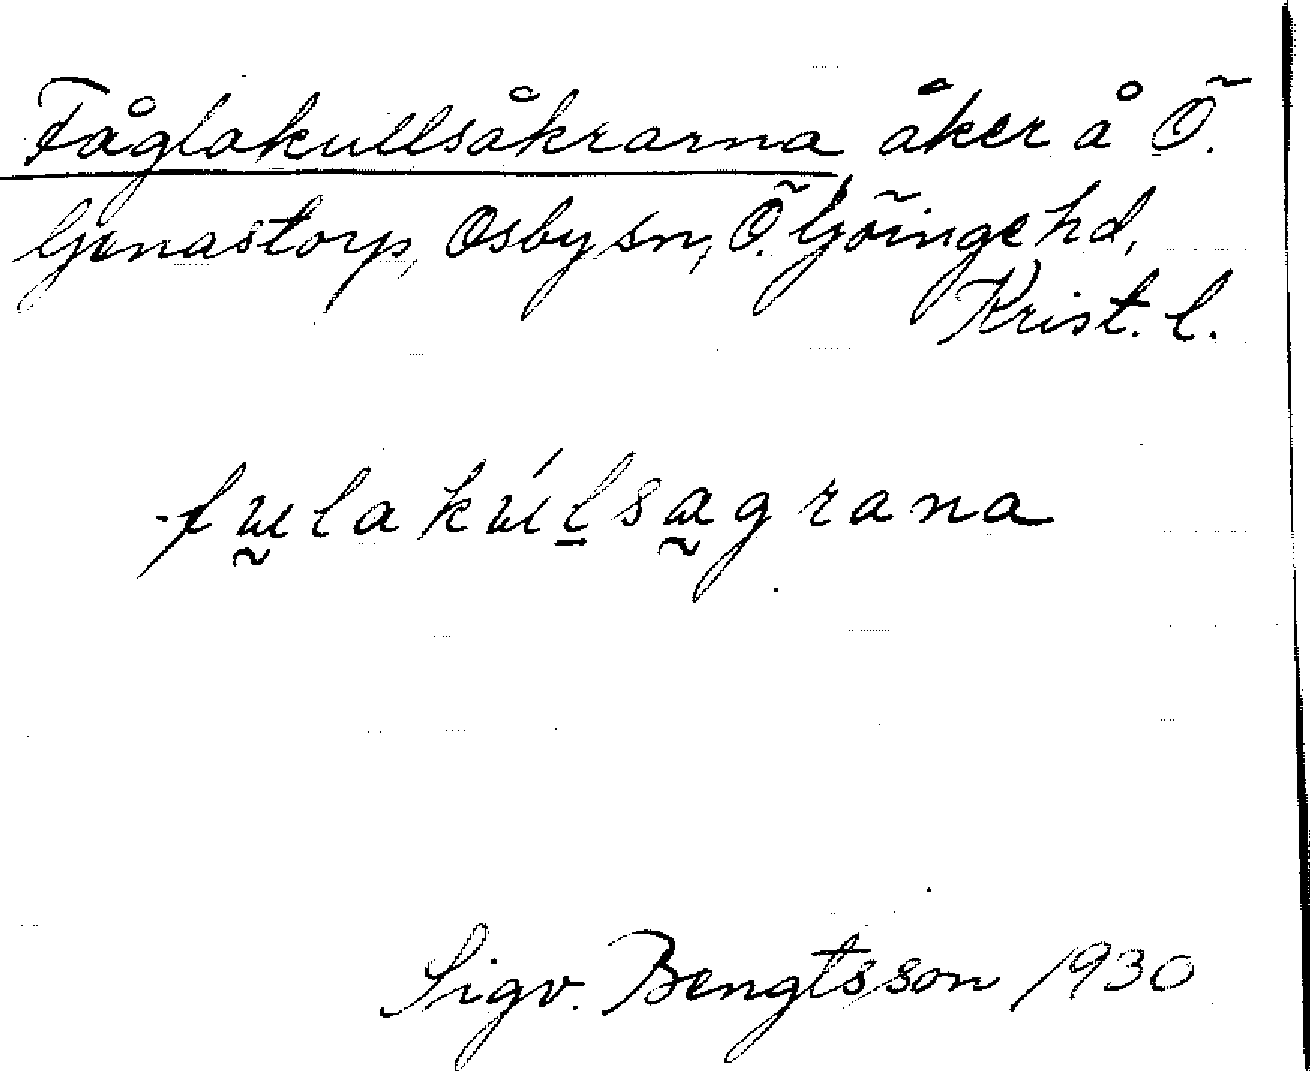 Fåglakullsåkrarna åker å Ö.
Genastorp, Osby sn, Ö. Göinge hd,
Krist. l.
fɯlakɯ́lsagrana
Sigv. Bengtsson 1930